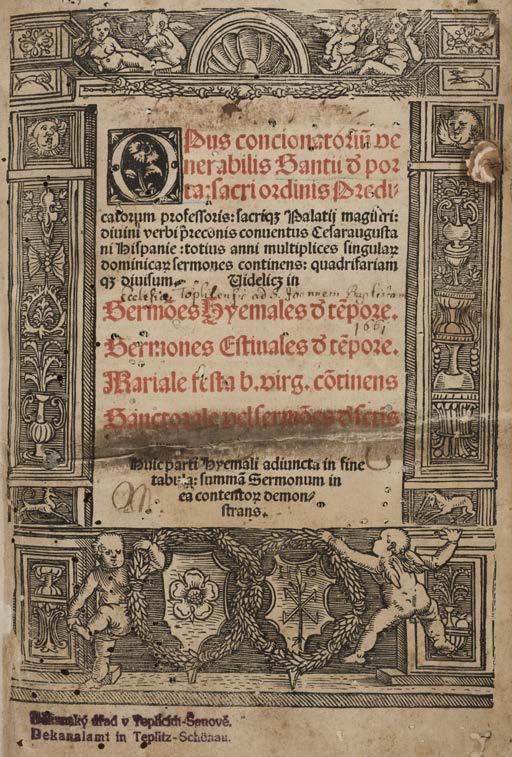 Opus concionatoriũ ve
nerabilis Santii ď por
ta: sacri ordinis Predi
catorum professoris: sacriqꝫ Palatij magistri:
diuini verbi p̃reconis conuentus Cesaraugusta
ni Hispanie: totius anni multiplices singulaꝝ
dominicaꝝ sermones continens: quadrifariam
qꝫ diuisum. Uidelicꝫ in
Ecclesiæ Toplicensis ad S. Joannem Baptistam
Sermões Hyemales ď tẽpore.
1661
Sermones Estiuales ď tẽpore.
Mariale festa b. virg. cõtinens
Sanctorale vel sermões ď sctis
Huic parti Hyemali adiuncta in fine
tabula: summã Sermonum in
ea contentoꝝ demon-
strans.
Děkanský úřad v Teplicích-Šanově.
Dekanalamt in Teplitz-Schönau.